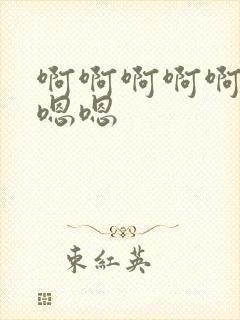 啊啊啊啊啊
嗯嗯
束紅英